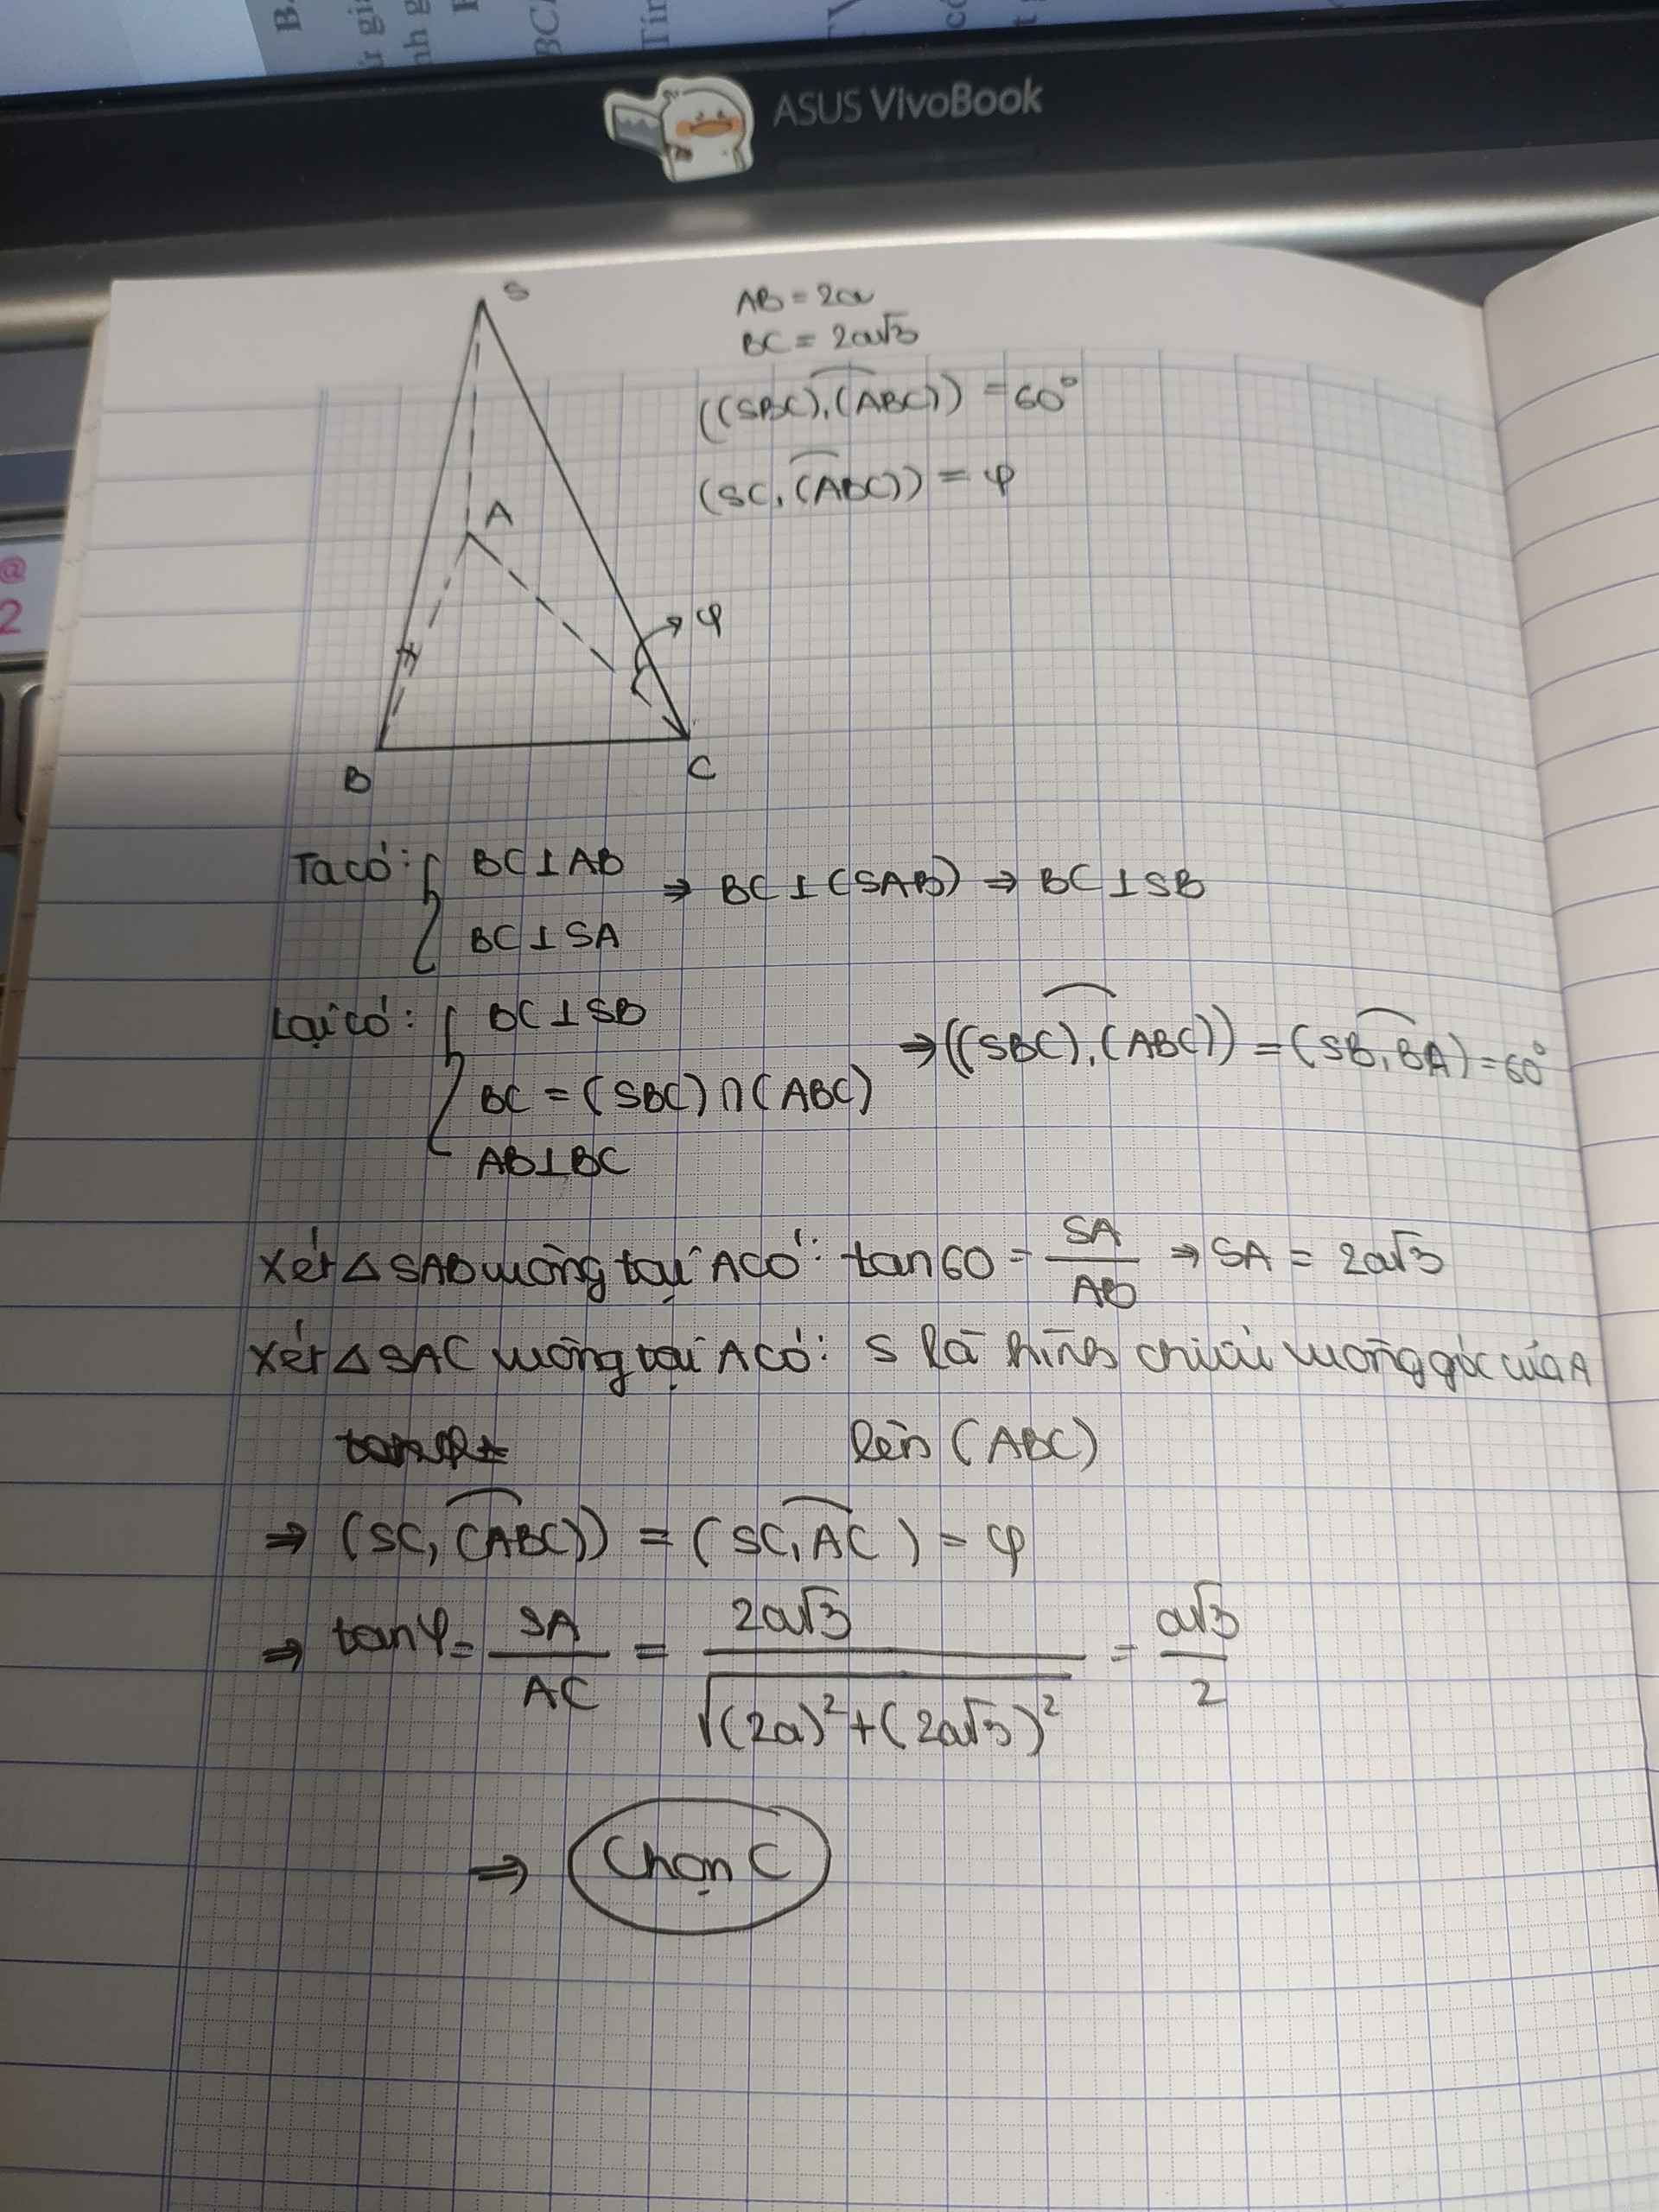 B.
BC
Tín
ASUS VivoBook
@
2
S
AB = 2a
BC = 2a√3
((SBC),(ABC)) = 60°
(SC,(ABC)) = φ
A
φ
B
C
Ta có: { BC⊥AB
BC⊥SA
⇒ BC⊥(SAB) ⇒ BC⊥SB
Lại có: { BC⊥SB
BC = (SBC)∩(ABC)
AB⊥BC
⇒((SBC),(ABC)) = (SB,BA) = 60°
Xét △SAB vuông tại A có: tan60 = SA/AB ⇒ SA = 2a√3
Xét △SAC vuông tại A có: S là hình chiếu vuông góc của A
lên (ABC)
⇒ (SC,(ABC)) = (SC,AC) = φ
⇒ tanφ = SA/AC = 2a√3/√((2a)²+(2a√3)²) = a√3/2
⇒ Chọn C